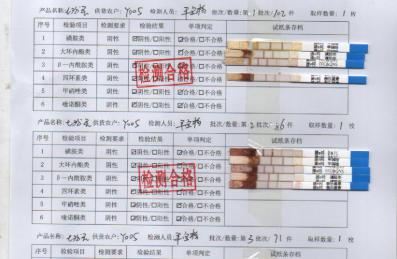 产品名称: 供货农户: Y005 检测人员: 批次/数量:第1批次/102件 取样数量:1枚
序号 检验项目 检测要求 检验结果 单项判定 试纸条存档
1 磺胺类 阴性 ☑阴性/☐阳性 ☑合格/☐不合格
2 大环内酯类 阴性 ☑阴性/☐阳性 ☑合格/☐不合格
3 β一内酰胺类 阴性 ☑阴性/☐阳性 ☑合格/☐不合格
4 四环素类 阴性 ☑阴性/☐阳性 ☑合格/☐不合格
5 甲硝唑类 阴性 ☑阴性/☐阳性 ☑合格/☐不合格
6 喹诺酮类 阴性 ☑阴性/☐阳性 ☑合格/☐不合格
检测合格
产品名称: 供货农户: Y005 检测人员: 批次/数量:第2批次/ 6件 取样数量:1枚
序号 检验项目 检测要求 检验结果 单项判定 试纸条存档
1 磺胺类 阴性 ☑阴性/☐阳性 ☑合格/☐不合格
2 大环内酯类 阴性 ☑阴性/☐阳性 ☑合格/☐不合格
3 β一内酰胺类 阴性 ☑阴性/☐阳性 ☑合格/☐不合格
4 四环素类 阴性 ☑阴性/☐阳性 ☑合格/☐不合格
5 甲硝唑类 阴性 ☑阴性/☐阳性 ☑合格/☐不合格
6 喹诺酮类 阴性 ☑阴性/☐阳性 ☑合格/☐不合格
检测合格
产品名称: 供货农户: Y005 检测人员: 批次/数量:第3批次/71件 取样数量:1枚
序号 检验项目 检测要求 检验结果 单项判定 试纸条存档